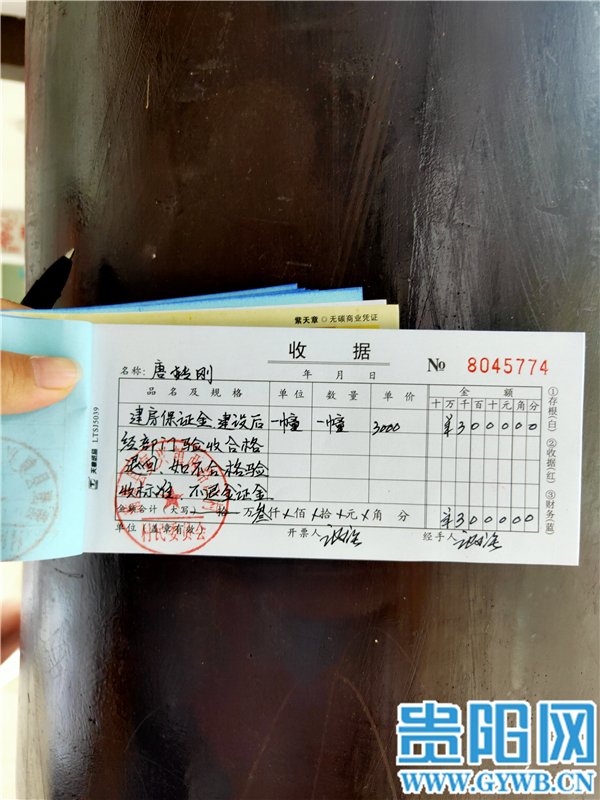 紫天章 无碳商业凭证
收 据
No 8045774
名称: 唐 刚
年 月 日
品名及规格 单位 数量 单价 金额
十万千百十元角分
建房保证金.建设后 一幢 一幢 3000 ¥300000
经部门验收合格
退回.如不合格验
收标准.不退金证金
金额合计(大写) 拾 万叁仟 佰 拾 元 角 分 ¥300000
单位(盖章有效) 开票人 经手人
村民委员会
①存根(白) ②收据(红) ③财务(蓝)
LTSJ5039
贵阳网
WWW.GYWB.CN